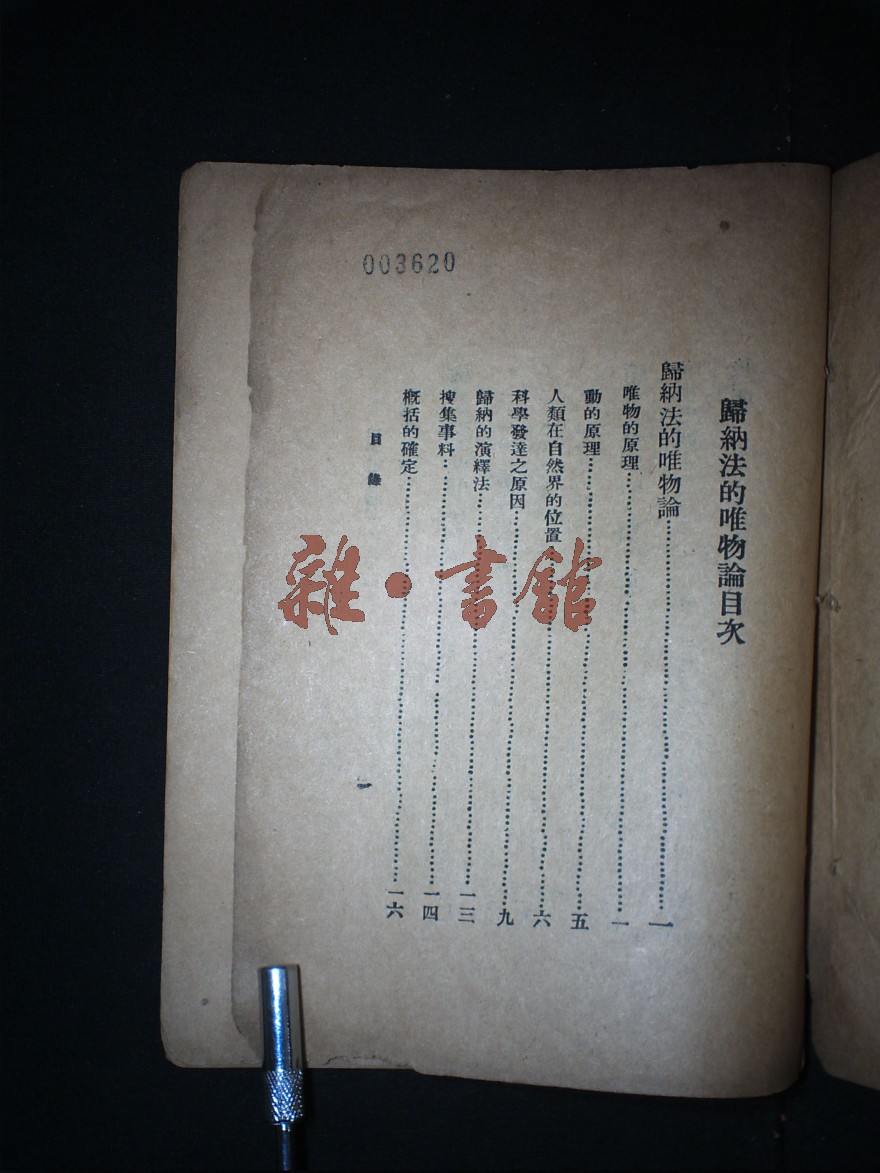 003620
歸納法的唯物論目次
歸納法的唯物論…………一
唯物的原理…………一
動的原理…………五
人類在自然界的位置…………六
科學發達之原因…………九
歸納的演釋法…………一三
搜集事料…………一四
概括的確定…………一六
目錄
一
雜·書館